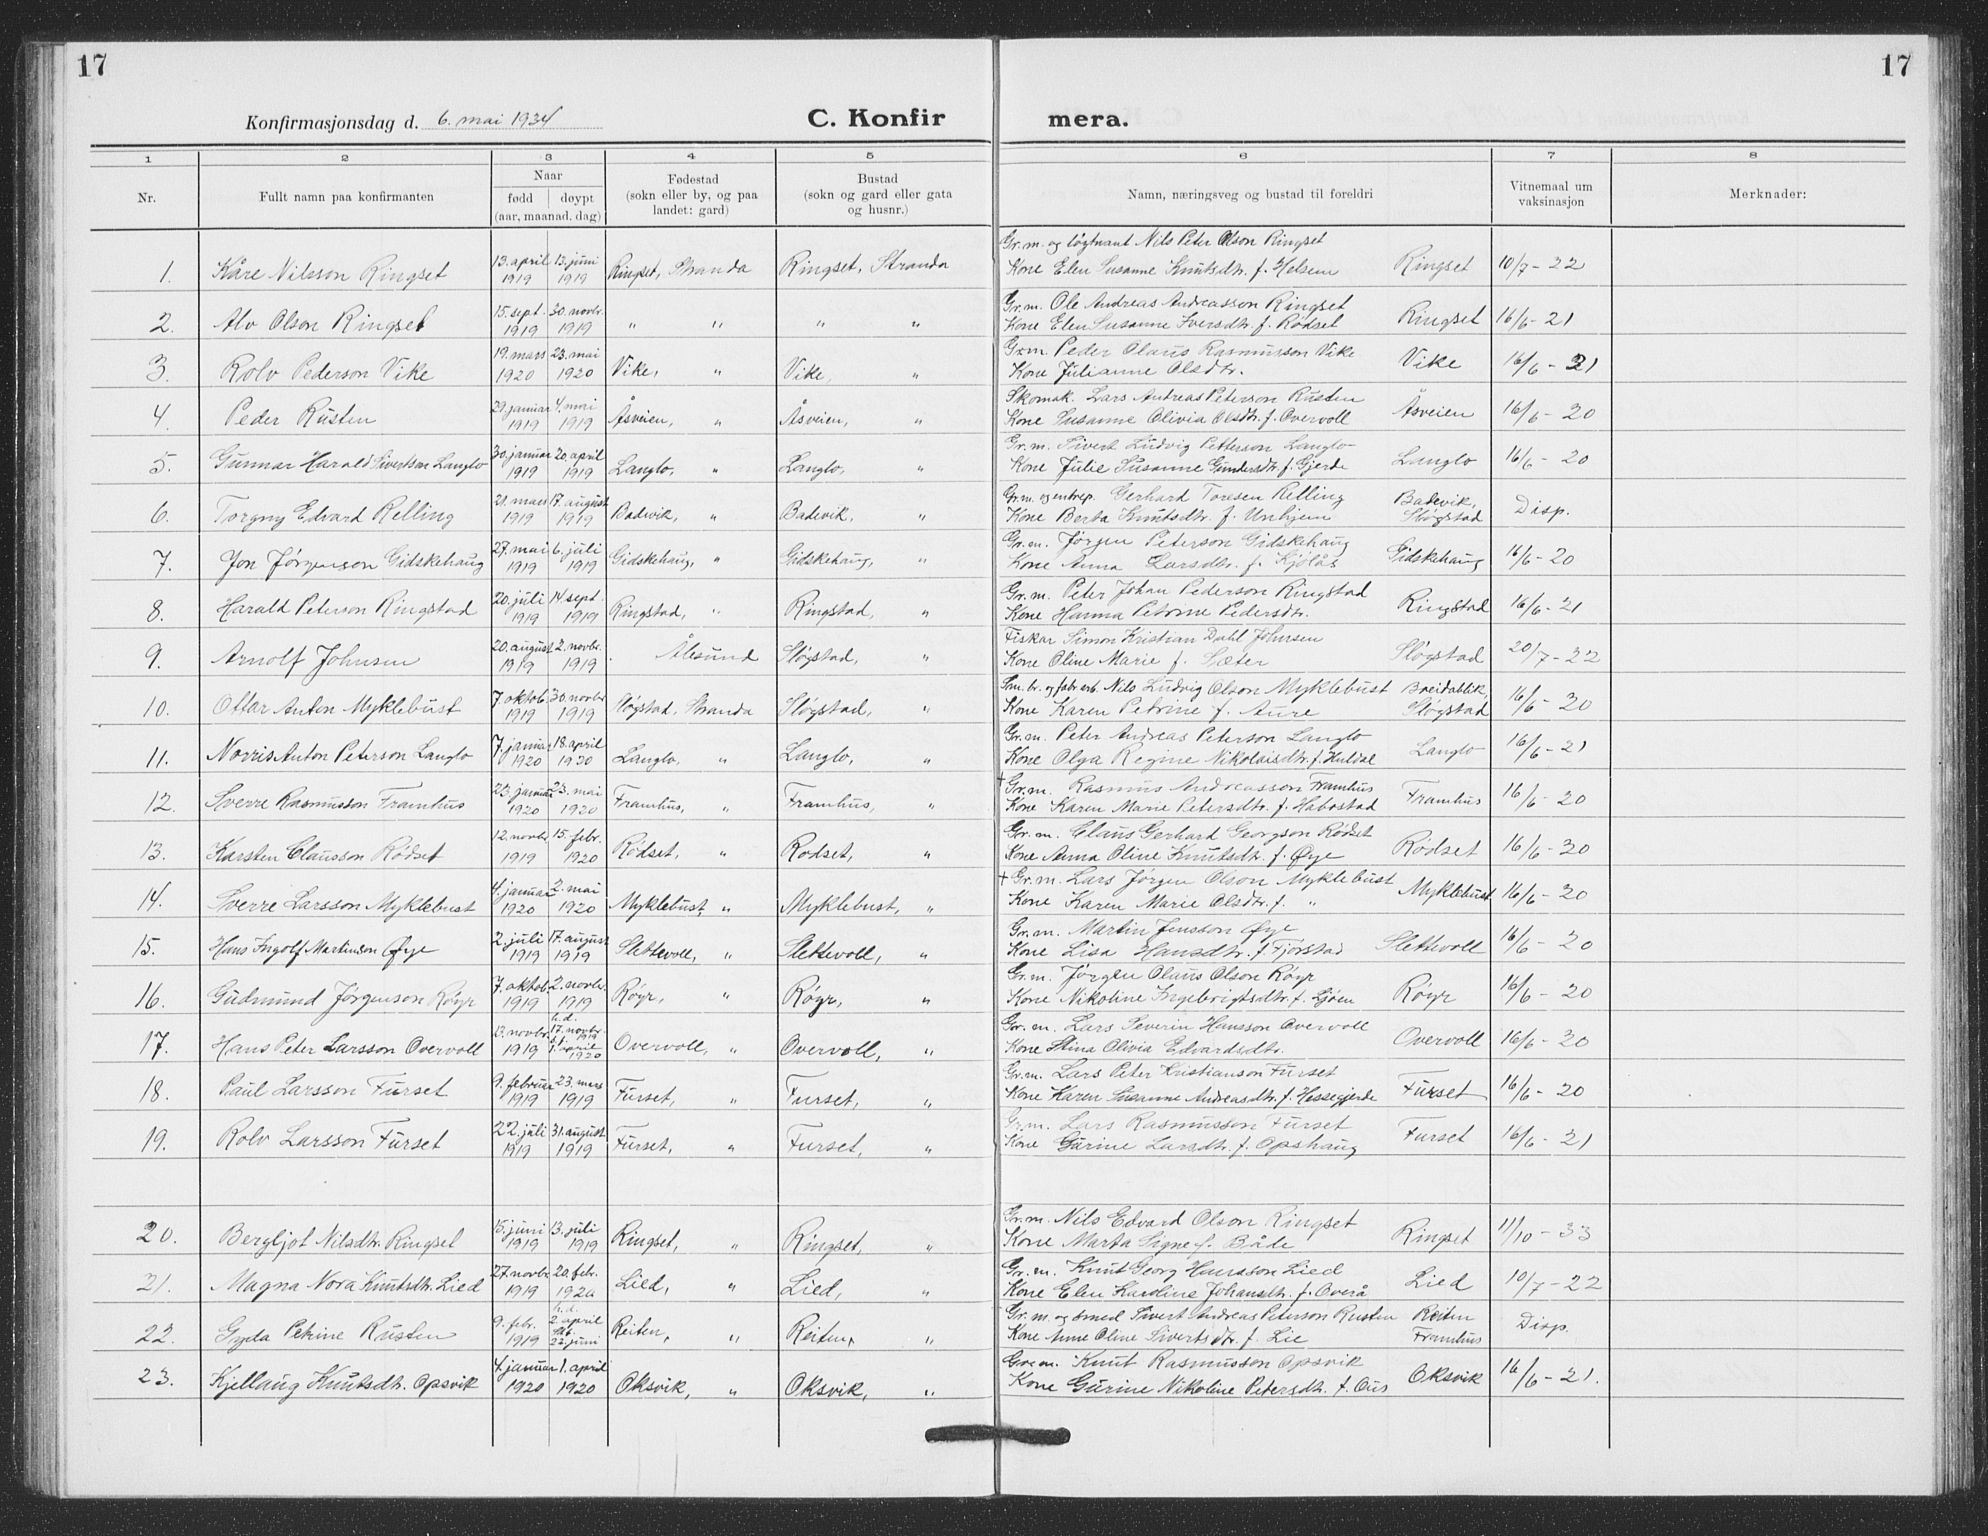 17
17
Konfirmasjonsdag d. 6. mai 1934
C. Konfir mera.
1 2 3 4 5 6 7 8
Nr. Fullt namn paa konfirmanten Naar fødd døypt (aar, maanad, dag) Fødestad (sokn eller by, og paa landet: gard) Bustad (sokn og gard eller gata og husnr.) Namn, næringsveg og bustad til foreldri Vitnemaal um vaksinasjon Merknader:
1. Kåre Nilsson Ringset 13. april 1919 13. juni 1919 Ringset, Stranda Ringset, Stranda Gr.m. og løytnant Nils Peter Olson Ringset Kone Elen Susanne Knutsdtr. f. Helsem Ringset 10/7 - 22
2. Alv Olson Ringset 15. sept. 1919 30. novbr. 1919 " " " " Gr.m. Ole Andreas Andreasson Ringset Kone Elen Susanne Iversdtr. f. Rødset Ringset 16/6 - 21
3. Rolv Pederson Vike 19. mars 1920 23. mai 1920 Vike, " Vike, " Gr.m. Peder Olaus Rasmusson Vike Kone Julianne Olsdtr. Vike 16/6 - 21
4. Peder Rusten 29. januar 1919 4. mai 1919 Åsveien, " Åsveien, " Skomak. Lars Andreas Peterson Rusten Kone Susanne Olivia Olsdtr. f. Overvoll Åsveien 16/6 - 20
5. Gunnar Harald Sivertson Langlo 30. januar 1919 20. april 1919 Langlo, " Langlo, " Gr.m. Sivert Ludvig Petterson Langlo Kone Julie Susanne Gundersdtr. f. Gjerde Langlo 16/6 - 20
6. Torgny Edvard Relling 21. mars 1919 17. august 1919 Badevik, " Badevik, " Gr.m. og entrep. Gerhard Toresen Relling Kone Berta Knutsdtr. f. Unhjem Badevik, Sløgstad Disp.
7. Jon Jørgenson Gidskehaug 27. mai 1919 6. juli 1919 Gidskehaug, " Gidskehaug, " Gr.m. Jørgen Peterson Gidskehaug Kone Anna Larsdtr. f. Kjølås Gidskehaug 16/6 - 20
8. Harald Peterson Ringstad 20. juli 1919 14. sept. 1919 Ringstad, " Ringstad, " Gr.m. Peter Johan Pederson Ringstad Kone Hanna Petrine Pedersdtr. Ringstad 16/6 - 21
9. Arnolf Johnsen 20. august 1919 2. novbr. 1919 Ålesund Sløgstad, " Fiskar Simon Kristian Dahl Johnsen Kone Oline Marie f. Sæter Sløgstad 20/7 - 22
10. Ottar Anton Myklebust 7. oktob. 1919 30. novbr 1919 Sløgstad, Stranda Sløgstad, " Sm. br. og fabr.arb. Nils Ludvig Olson Myklebust Kone Karen Petrine f. Aure Breidablik, Sløgstad 16/6 - 20
11. Norris Anton Peterson Langlo 7. januar 1920 18. april 1920 Langlo, " Langlo, " Gr.m. Peter Andreas Peterson Langlo Kone Olga Regine Nikolaisdtr. f. Huldal Langlo 16/6 - 21
12. Sverre Rasmusson Framhus 23. januar 1920 23. mai 1920 Framhus, " Framhus, " † Gr.m. Rasmus Andreasson Framhus Kone Karen Marie Petersdtr. f. Habostad Framhus 16/6 - 20
13. Karsten Clausson Rødset 12. novbr. 1919 15. febr. 1920 Rødset, " Rødset, " Gr.m. Claus Gerhard Georgson Rødset Kone Anna Oline Knutsdtr. f. Øye Rødset 16/6 - 20
14. Sverre Larsson Myklebust 4. januar 1920 2. mai 1920 Myklebust, " Myklebust, " † Gr.m. Lars Jørgen Olson Myklebust Kone Karen Marie Olsdtr. f. " Myklebust 16/6 - 20
15. Hans Ingolf Martinson Øye 2. juli 1919 17. august 1919 Slettevoll, " Slettevoll, " Gr.m. Martin Jensson Øye Kone Lisa Hansdtr. f. Fjørstad Slettevoll 16/6 - 20
16. Gudmund Jørgenson Røyr 7. oktob. 1919 2. novbr. 1919 Røyr, " Røyr, " Gr.m. Jørgen Olaus Olson Røyr Kone Nikoline Ingebrigtsdtr. f. Ljøen Røyr 16/6 - 20
17. Hans Peter Larsson Overvoll 3. novbr. 1919 h.d. 17. novbr. 1919 1. april 1920 Overvoll, " Overvoll, " Gr.m. Lars Severin Hansson Overvoll Kone Stina Olivia Edvardsdtr. Overvoll 16/6 - 20
18. Paul Larsson Furset 9. februar 1919 23. mars 1919 Furset, " Furset, " Gr.m. Lars Peter Kristianson Furset Kone Karen Susanne Andreasdtr. f. Hessegjerde Furset 16/6 - 20
19. Rolv Larsson Furset 22. juli 1919 31. august 1919 Furset, " Furset, " Gr.m. Lars Rasmusson Furset Kone Gurine Larsdtr. f. Opshaug Furset 16/6 - 21
20. Bergljot Nilsdtr. Ringset 15. juni 1919 13. juli 1919 Ringset, " Ringset, " Gr.m. Nils Edvard Olson Ringset Kone Marta Signe f. Både Ringset 11/10 - 33
21. Magna Nora Knutsdtr. Lied 27. novbr. 1919 20. febr. 1920 Lied, " Lied, " Gr.m. Knut Georg Hansson Lied Kone Elen Karoline Johansdtr. f. Overå Lied 10/7 - 22
22. Gyda Petrine Rusten 9. febr. 1919 h.d. 2. april 22. juni Reiten, " Reiten, " Gr.m. og smed Sivert Andreas Peterson Rusten Kone Anne Oline Sivertsdtr. f. Lie Reiten Framhus Disp.
23. Kjellaug Knutsdtr. Opsvik 4. januar 1920 1. april 1920 Oksvik, " Oksvik, " Gr.m. Knut Rasmusson Opsvik Kone Gurine Nikoline Petersdtr. f. Ous Oksvik 16/6 - 21.